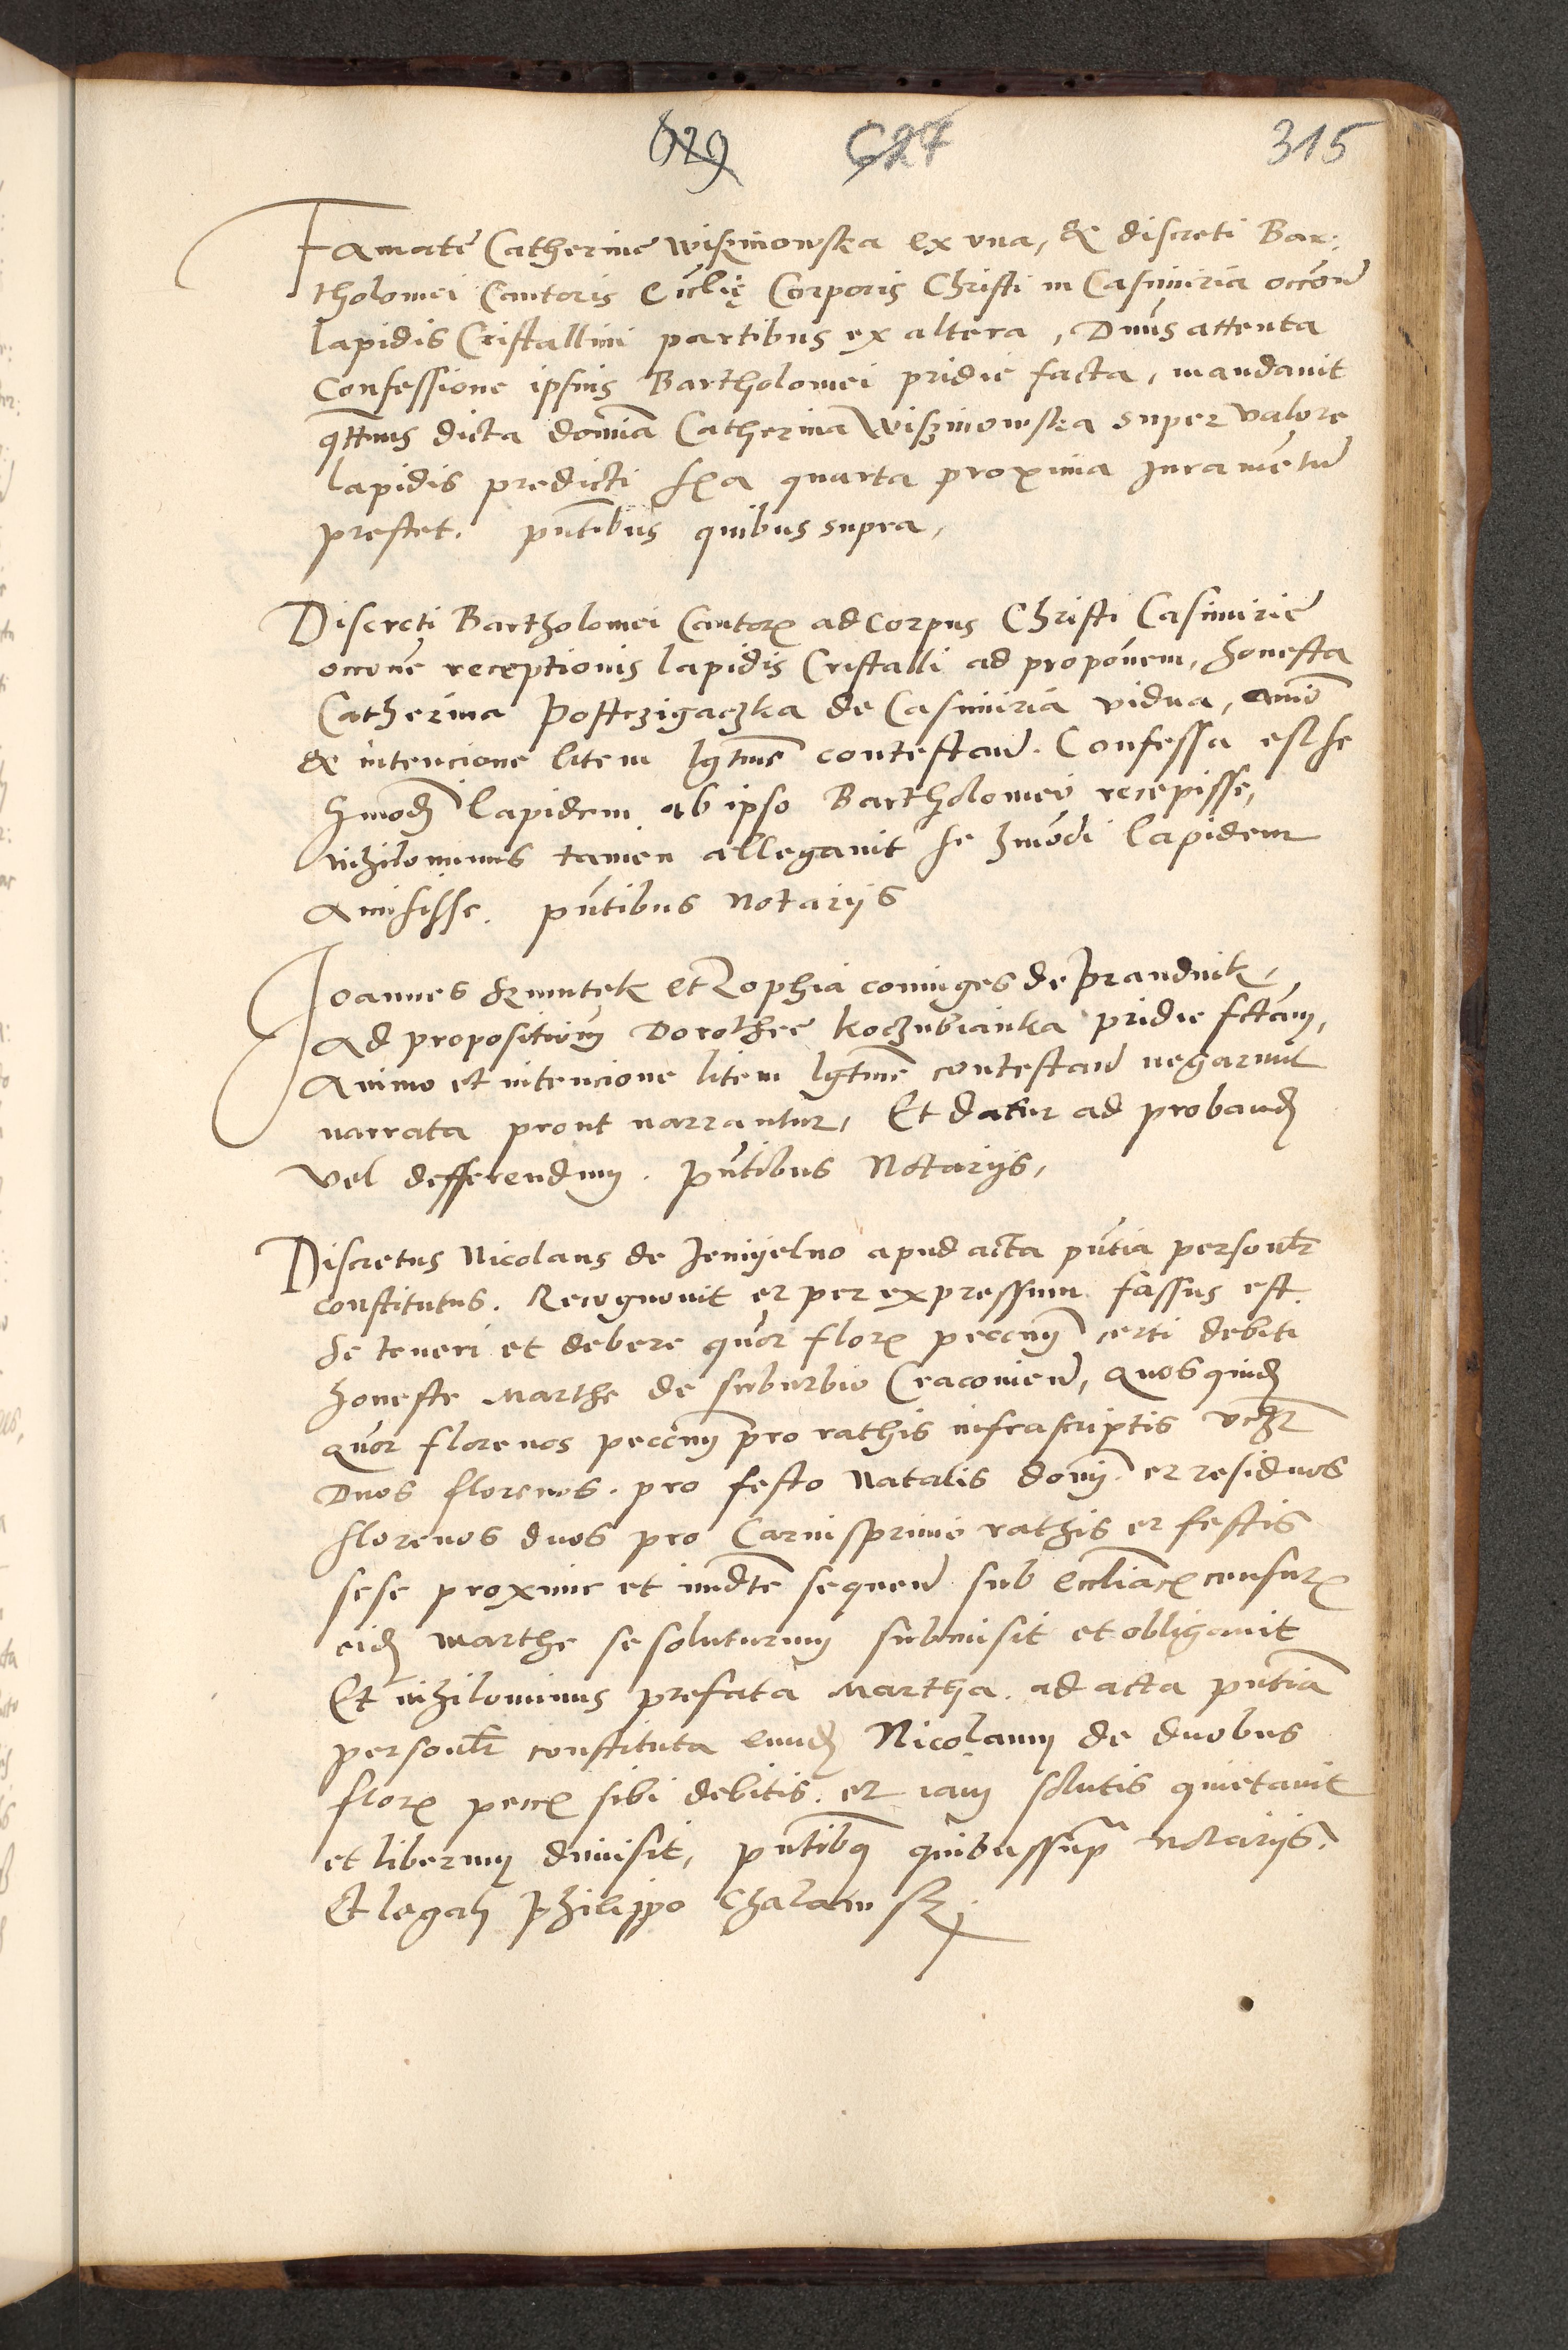 629 627 315
Famate Catherine Wiszinowska ex vna, & discreti Bar:
tholomei Cantoris Ecclię Corporis Christi in Casimiria occōne
lapidis Cristallini partibus ex altera, Dnus attenta
Confessione ipsius Bartholomei pridie facta, mandauit
qtenus dicta domina Catherina Wiszinowska super valore
lapidis predicti fra quarta proxima Juramentū
prestet. pntibus quibus supra,
Discreti Bartholomei Cantor ad Corpus Christi Casimirie
occone receptionis lapidis Cristalli ad proponem, honesta
Catherina de Casimiria vidua, animo
& intencione litem lgtme contestand. Confessa est se
hmodi lapidem ab ipso Bartholomeo recepisse,
nihilominus tamen allegauit se hmodi lapidem
Amisisse. pntibus Notarijs
Joannes et Zophia coniuges de Prandnik,
Ad propositiōm Dorothee Koczubianka pridie fctam,
Animo et intencione litem lgtme contestand negarunt
narrata prout narrantur, Et datur ad proband
vel defferendum. pntibus Notarijs,
Discretus Nicolaus de Jemyelno apud acta pntia personlr
constitutus. Recognouit et per expressum fassus est
se teneri et debere quor flor peccnm certi debiti
honeste Marthe de suburbio Cracouien, quos quid
quor florenos peccnm pro rathis infrascriptis vchz
Duos florenos. pro festo Natalis domi. et residuos
florenos duos pro Carnispriuio rathis et festis
sese proxime et imdte sequen sub eccliacz censur
eid Marthe se soluturum submisit et obligauit
Et nihilominus prefata Martha. ad acta pntia
personlr constituta eund Nicolaum de duobus
flor pecc sibi debitis. et iam solutis quietauit
et liberum dimisit, pntibus quibussupra notarijs.
Et legali Philippo